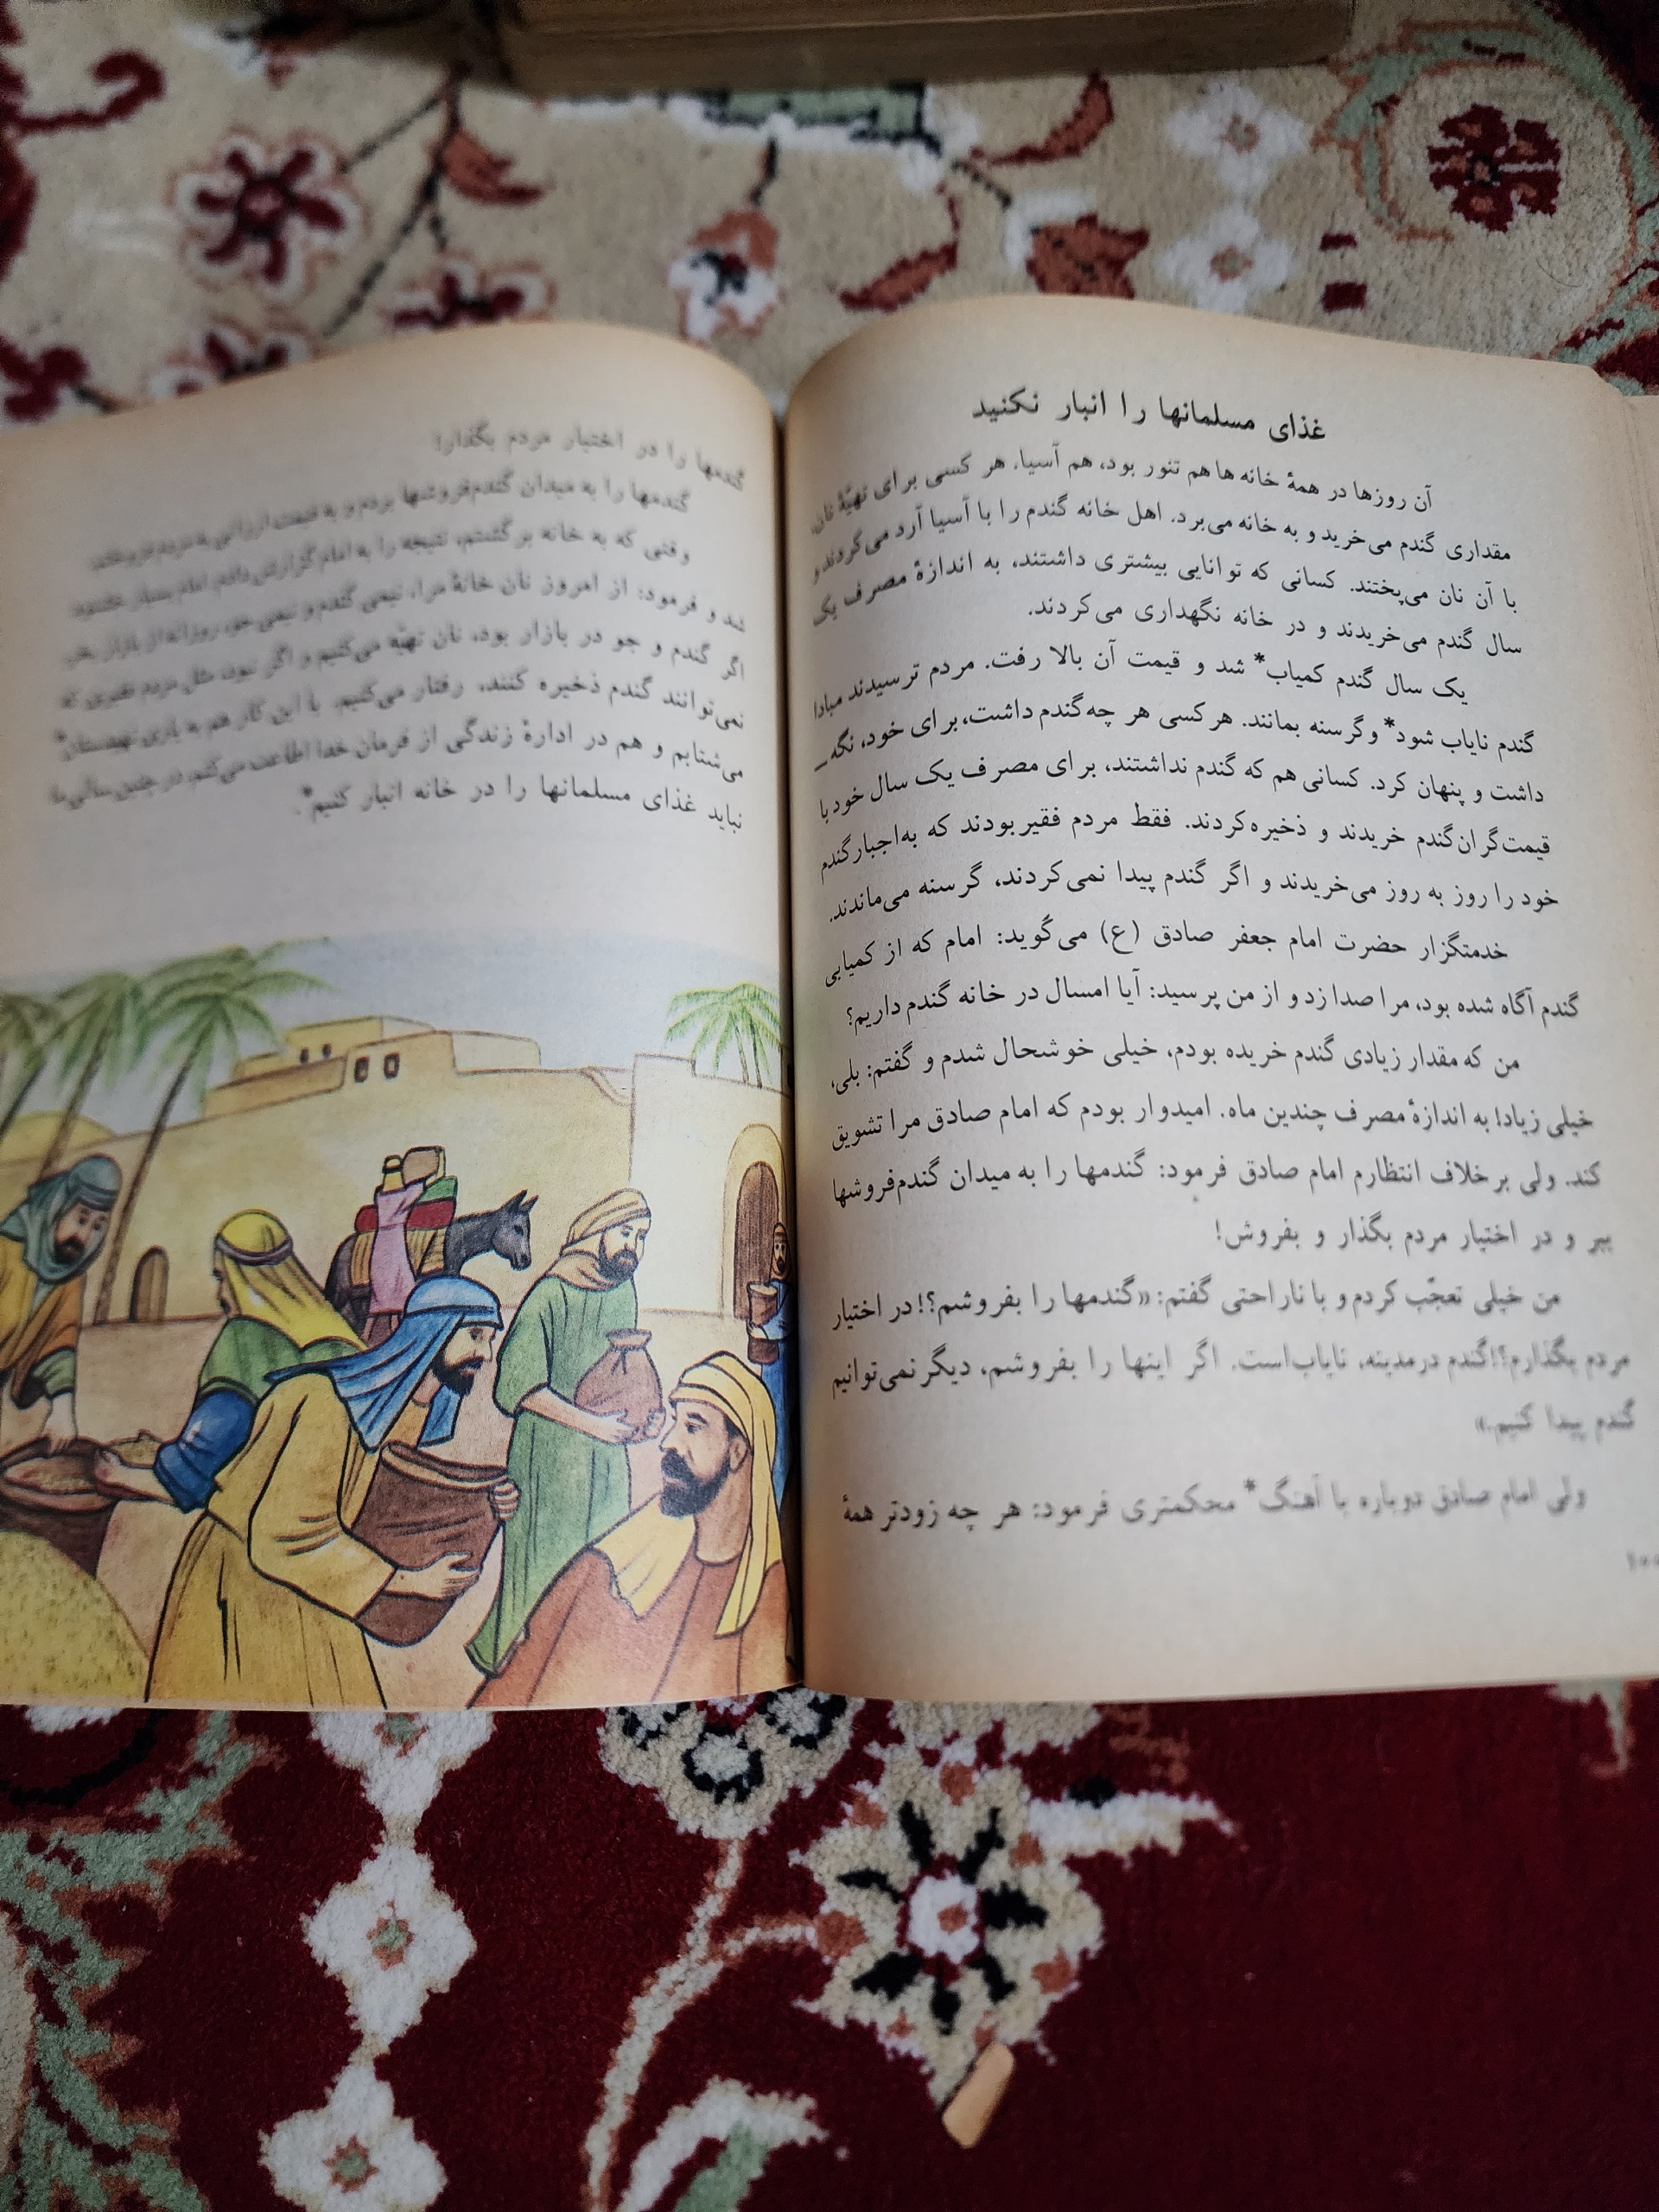 غذای مسلمانها را انبار نکنید
آن روزها در همهٔ خانه ها هم تنور بود، هم آسیا. هر کسی برای تهیّهٔ نان،
مقداری گندم می‌خرید و به خانه می‌برد. اهل خانه گندم را با آسیا آرد می‌کردند و
با آن نان می‌پختند. کسانی که توانایی بیشتری داشتند، به اندازهٔ مصرف یک
سال گندم می‌خریدند و در خانه نگهداری می‌کردند.
یک سال گندم کمیاب* شد و قیمت آن بالا رفت. مردم ترسیدند مبادا
گندم نایاب شود* وگرسنه بمانند. هرکسی هر چه‌گندم داشت، برای خود، نگه ـ
داشت و پنهان کرد. کسانی هم که گندم نداشتند، برای مصرف یک سال خود با
قیمت‌گران‌گندم خریدند و ذخیره‌کردند. فقط مردم فقیر بودند که به‌اجبارگندم
خود را روز به روز می‌خریدند و اگر گندم پیدا نمی‌کردند، گرسنه می‌ماندند.
خدمتگزار حضرت امام جعفر صادق (ع) می‌گوید: امام که از کمیابی
گندم آگاه شده بود، مرا صدا زد و از من پرسید: آیا امسال در خانه گندم داریم؟
من که مقدار زیادی گندم خریده بودم، خیلی خوشحال شدم و گفتم: بلی،
خیلی زیاد! به اندازهٔ مصرف چندین ماه. امیدوار بودم که امام صادق مرا تشویق
کند. ولی برخلاف انتظارم امام صادق فرمود: گندمها را به میدان گندم‌فروشها
ببر و در اختیار مردم بگذار و بفروش!
من خیلی تعجّب کردم و با ناراحتی گفتم: «گندمها را بفروشم؟! در اختیار
مردم بگذارم؟!گندم درمدینه، نایاب‌است. اگر اینها را بفروشم، دیگر نمی‌توانیم
گندم پیدا کنیم.»
ولی امام صادق دوباره با آهنگ* محکمتری فرمود: هر چه زودتر همهٔ
گندمها را در اختیار مردم بگذار!
گندمها را به میدان گندم‌فروشها بردم و به قیمت ارزانی به مردم فروختم.
وقتی که به خانه برگشتم، نتیجه را به امام گزارش دادم. امام بسیار خشنود
شد و فرمود: از امروز نان خانهٔ مرا، نیمی گندم و نیمی جو، روزانه از بازار بخر.
اگر گندم و جو در بازار بود، نان تهیّه می‌کنیم و اگر نبود، مثل مردم فقیری که
نمی‌توانند گندم ذخیره کنند، رفتار می‌کنیم. با این کار هم به یاری تهیدستان*
می‌شتابم و هم در ادارهٔ زندگی از فرمان خدا اطاعت می‌کنم. در چنین سالی ما
نباید غذای مسلمانها را در خانه انبار کنیم*.